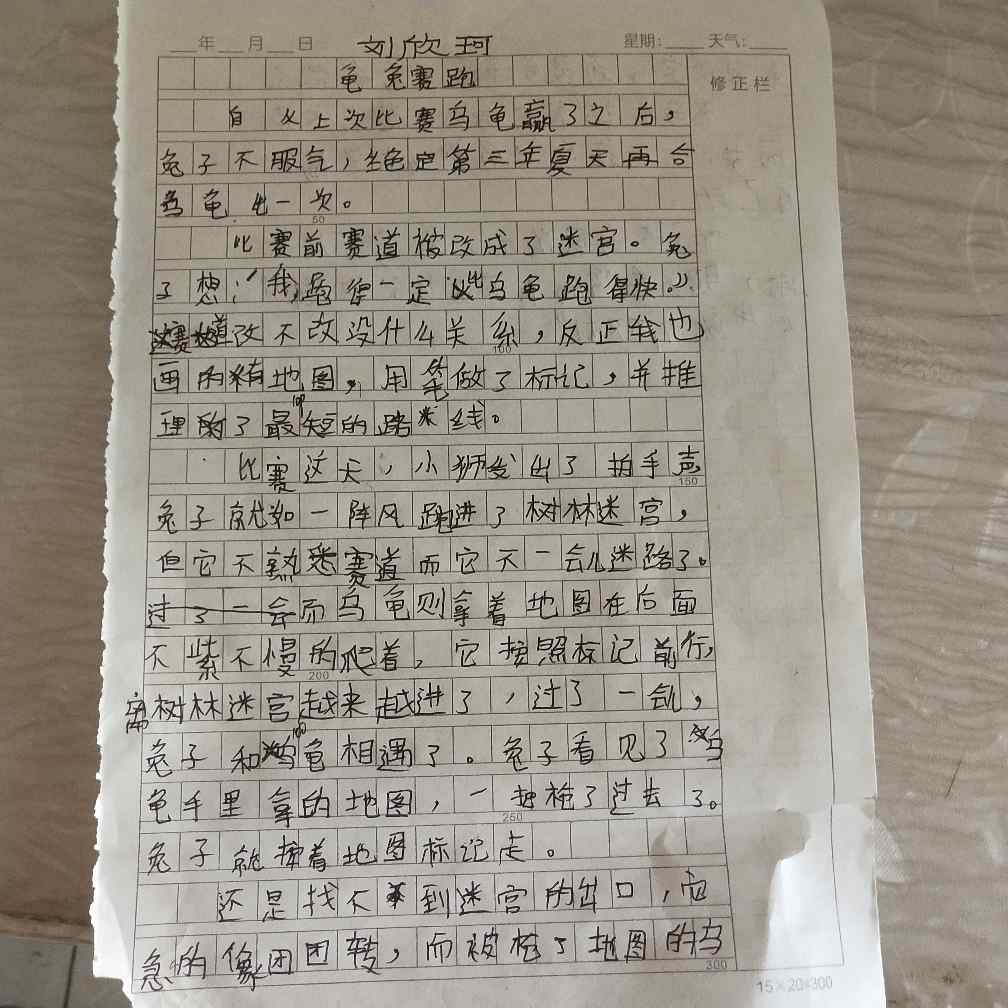 ___年___月___日 刘欣珂 星期:____天气:____
龟兔赛跑
修正栏
自从上次比赛乌龟赢了之后,
兔子不服气,绝定第三年夏天再合
乌龟比一次。
50
比赛前赛道被改成了迷宫。兔
了想:“我跑得一定比乌龟跑得快。”
这赛道改不改没什么关系,反正我也
100
画的有地图,用笔做了标记,并推
理了最短的路线。
比赛这天,小狮发出了拍手声
150
兔子就如一阵风跑进了树林迷宫,
但它不熟悉赛道而它不一会儿迷路了。
而乌龟则拿着地图在后面
不紧不慢的爬着,它按照标记前行,
200
离树林迷宫越来越进了,过了一会儿,
兔子和乌龟相遇了。兔子看见了乌
龟手里拿的地图,一把枪了过去了。
250
兔子就按着地图标记走。
还是找不到迷宫的出口,它
急的像团团转,而被枪了地图的乌
300
15×20=300